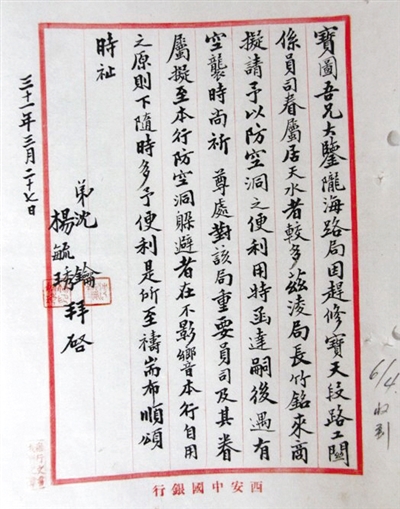 寶圖吾兄大鑒隴海路局因趕修寶天段路工關
係員司眷屬居天水者較多茲淩局長竹銘來商
擬請予以防空洞之便利用特函達嗣後遇有
空襲時尚祈 尊處對該局重要員司及其眷
屬擬至本行防空洞躲避者在不影響本行自用
之原則下隨時多予便利是所至禱耑布順頌
時祉
弟沈鑰
楊毓琇 拜啓
三十一年三月二十七日
6/4 收到
行銀國中安西